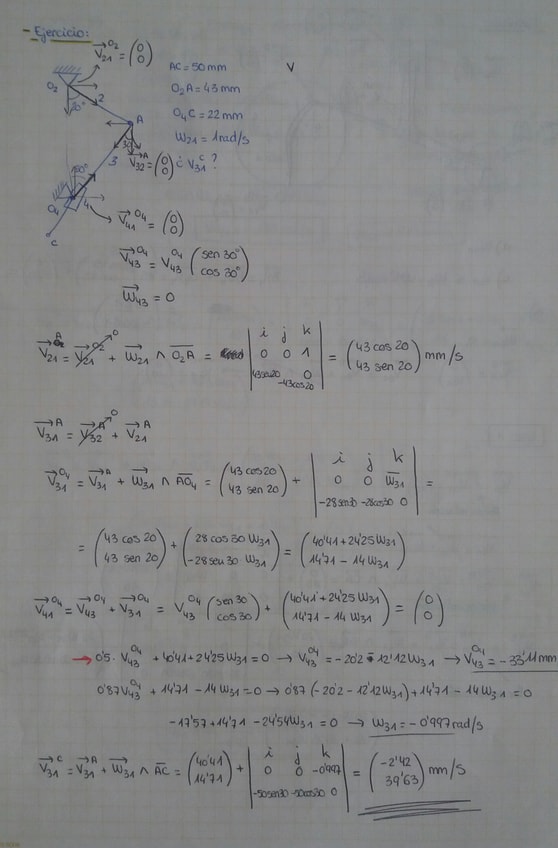 - Ejercicio:
V⃗₂₁^O₂ = (0 0)
AC = 50 mm
V
O₂A = 43 mm
O₄C = 22 mm
W₂₁ = 1 rad/s
V⃗₃₂^A = (0 0) ¿ V₃₁^C ?
O₂ 20° 2 A
3 30°
30° O₄ 4
C
V⃗₄₁^O₄ = (0 0)
V⃗₄₃^O₄ = V₄₃^O₄ (sen 30° cos 30°)
W⃗₄₃ = 0
V⃗₂₁^A = V⃗₂₁^O₂ 0 + W⃗₂₁ ∧ O₂A = | i j k 0 0 1 43sen20 -43cos20 0 | = (43 cos 20 43 sen 20) mm/s
V⃗₃₁^A = V⃗₃₂^A 0 + V⃗₂₁^A
V⃗₃₁^O₄ = V⃗₃₁^A + W⃗₃₁ ∧ AO₄ = (43 cos 20 43 sen 20) + | i j k 0 0 W₃₁ -28sen30 -28cos30 0 | =
= (43 cos 20 43 sen 20) + (28 cos 30 W₃₁ -28 sen 30 W₃₁) = (40'41 + 24'25 W₃₁ 14'71 - 14 W₃₁)
V⃗₄₁^O₄ = V⃗₄₃^O₄ + V⃗₃₁^O₄ = V₄₃^O₄ (sen 30 cos 30) + (40'41 + 24'25 W₃₁ 14'71 - 14 W₃₁) = (0 0)
→ 0'5 · V₄₃^O₄ + 40'41 + 24'25 W₃₁ = 0 → V₄₃^O₄ = -20'2 - 12'12 W₃₁ → V₄₃^O₄ = -33'11 mm
0'87 V₄₃^O₄ + 14'71 - 14 W₃₁ = 0 → 0'87 (-20'2 - 12'12 W₃₁) + 14'71 - 14 W₃₁ = 0
-17'57 + 14'71 - 24'54 W₃₁ = 0 → W₃₁ = -0'997 rad/s
V⃗₃₁^C = V⃗₃₁^A + W⃗₃₁ ∧ AC = (40'41 14'71) + | i j k 0 0 -0'997 -50sen30 -50cos30 0 | = (-2'42 39'63) mm/s